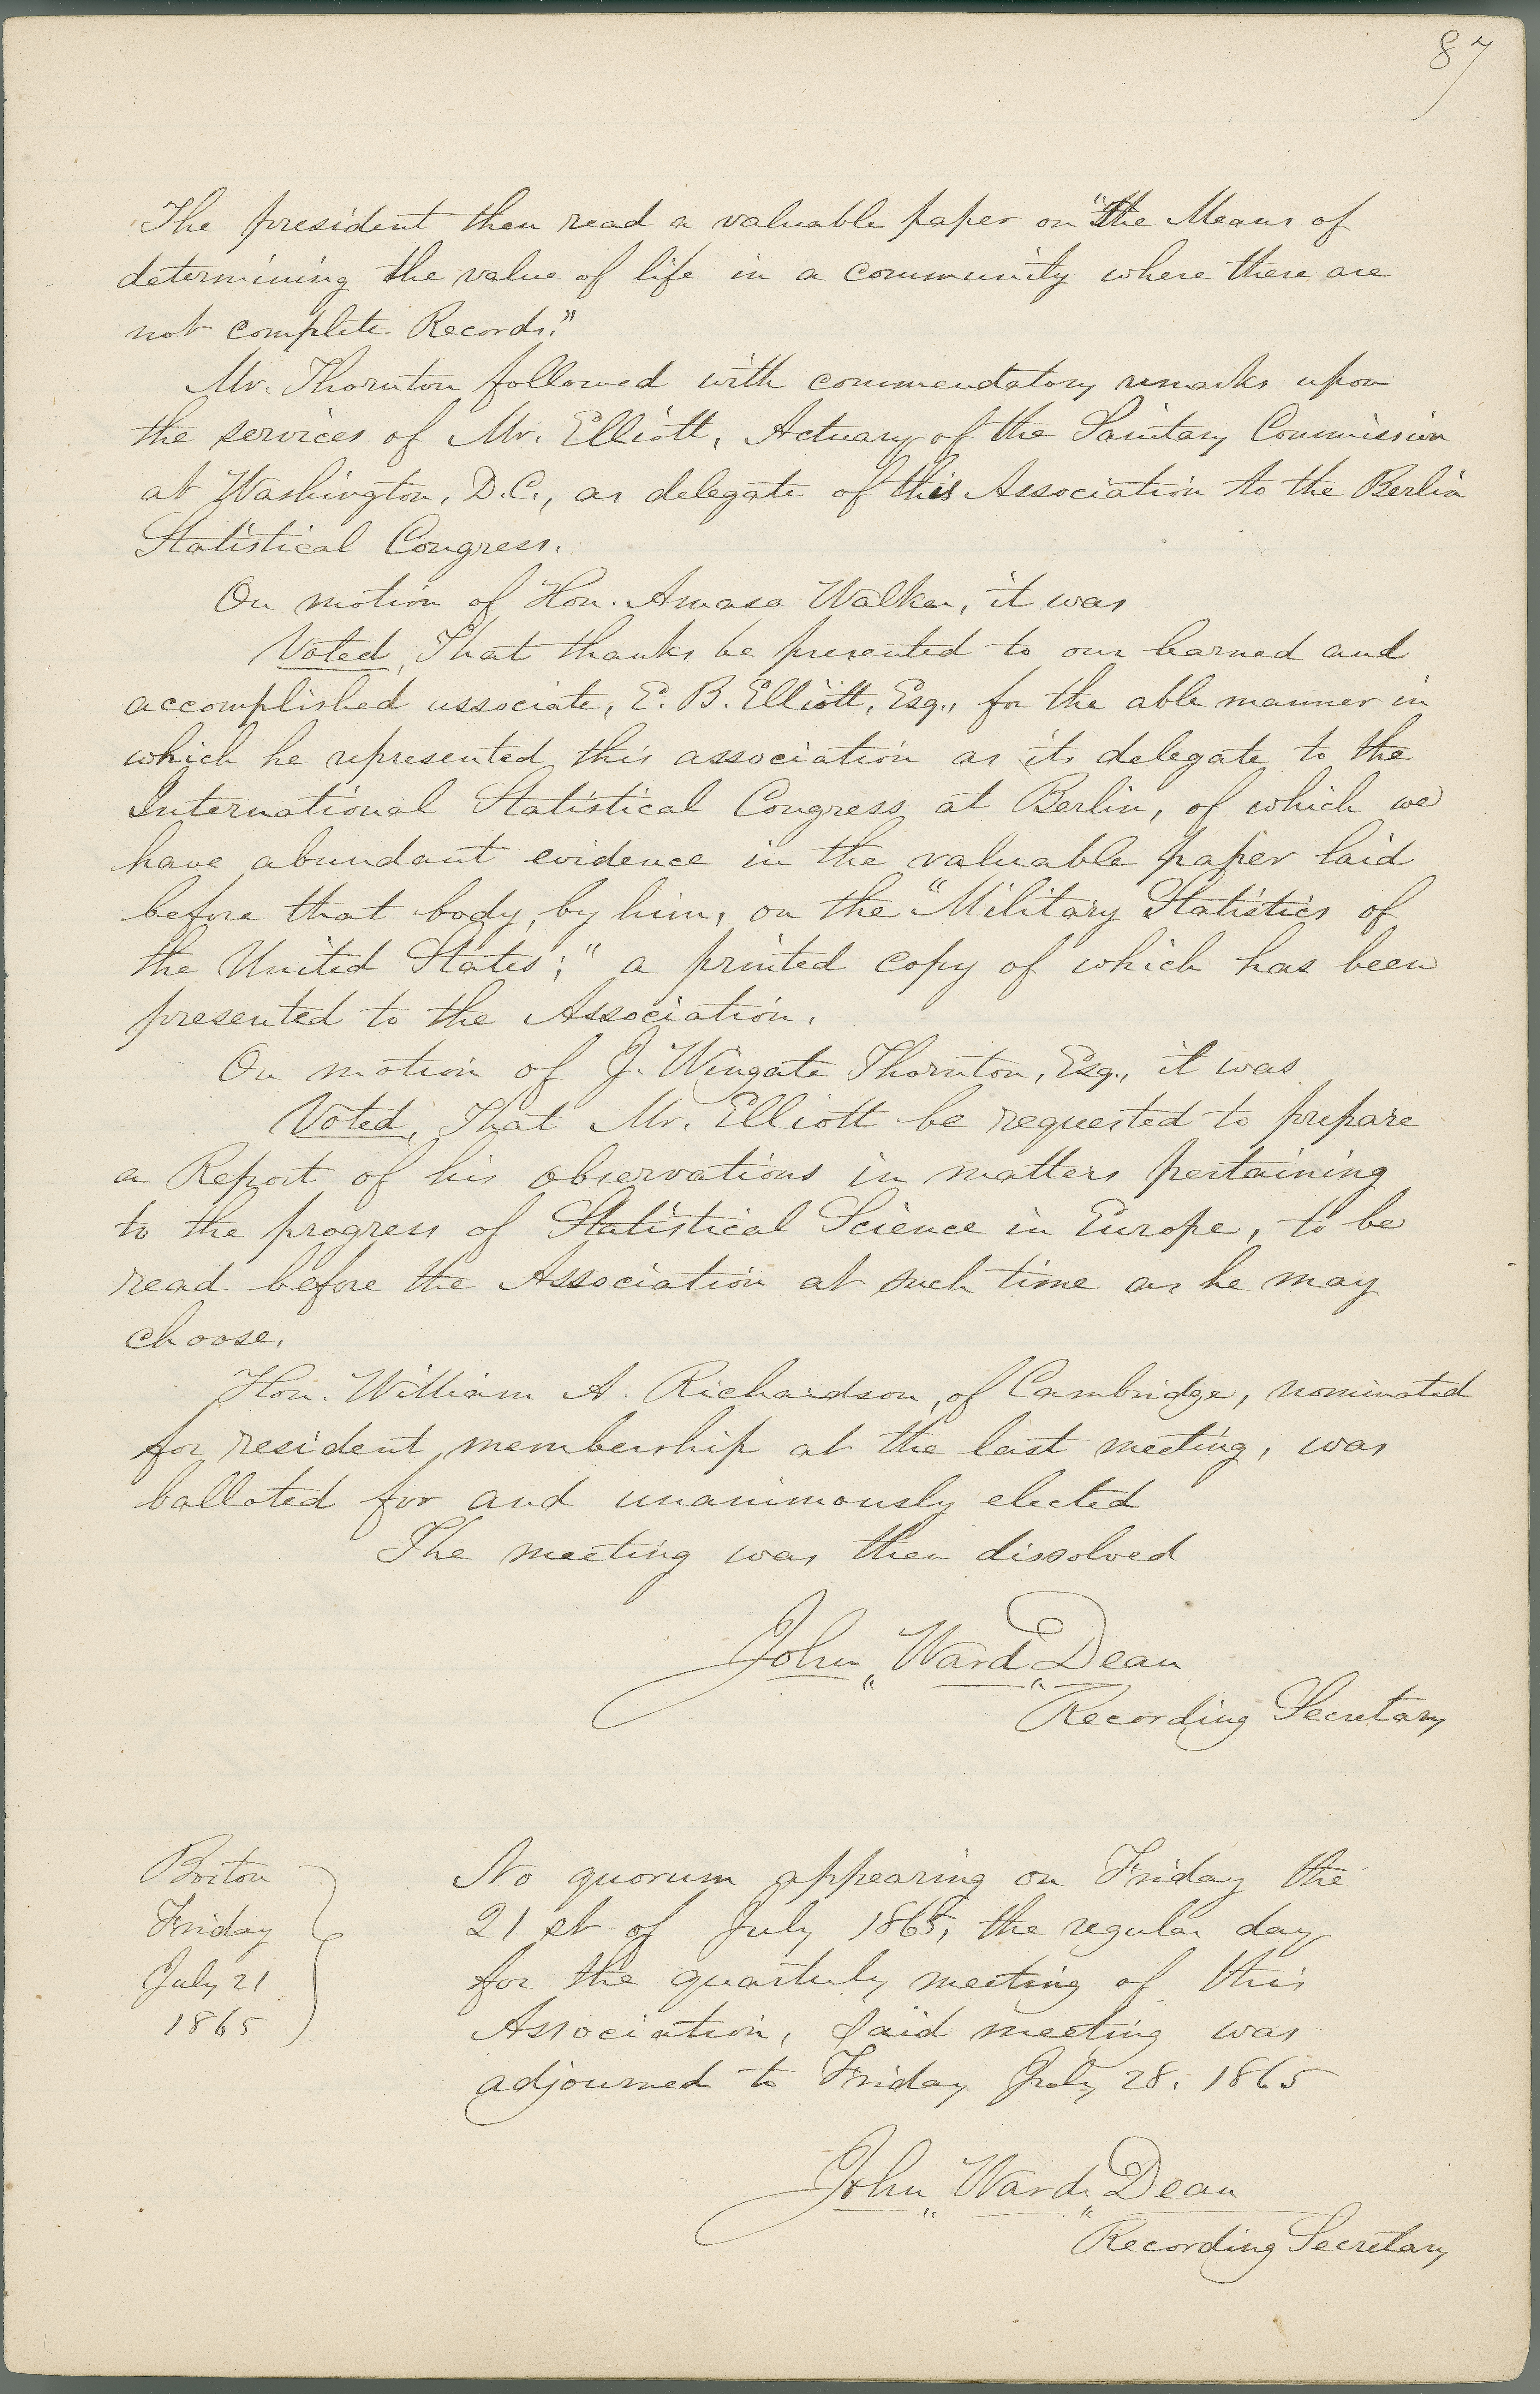 87
The president then read a valuable paper on "the Means of
determining the value of life in a community where there are
not complete Records."
Mr. Thornton followed with commendatory remarks upon
the services of Mr. Elliott, Actuary of the Sanitary Commission
at Washington, D.C., as delegate of this Association to the Berlin
Statistical Congress.
On motion of Hon. Amasa Walker, it was
Voted, That thanks be presented to our learned and
accomplished associate, E. B. Elliott, Esq., for the able manner in
which he represented this association as its delegate to the
International Statistical Congress at Berlin, of which we
have abundant evidence in the valuable paper laid
before that body, by him, on the "Military Statistics of
the United States;" a printed copy of which has been
presented to the Association.
On motion of J. Wingate Thornton, Esq., it was
Voted, That Mr. Elliott be requested to prepare
a Report of his observations in matters pertaining
to the progress of Statistical Science in Europe, to be
read before the Association at such time as he may
choose.
Hon. William A. Richardson, of Cambridge, nominated
for resident membership at the last meeting, was
balloted for and unanimously elected
The meeting was then dissolved
John Ward Dean
Recording Secretary
Boston
Friday
July 21
1865
No quorum appearing on Friday the
21st of July 1865, the regular day
for the quarterly meeting of this
Association, said meeting was
adjourned to Friday July 28, 1865
John Ward Dean
Recording Secretary